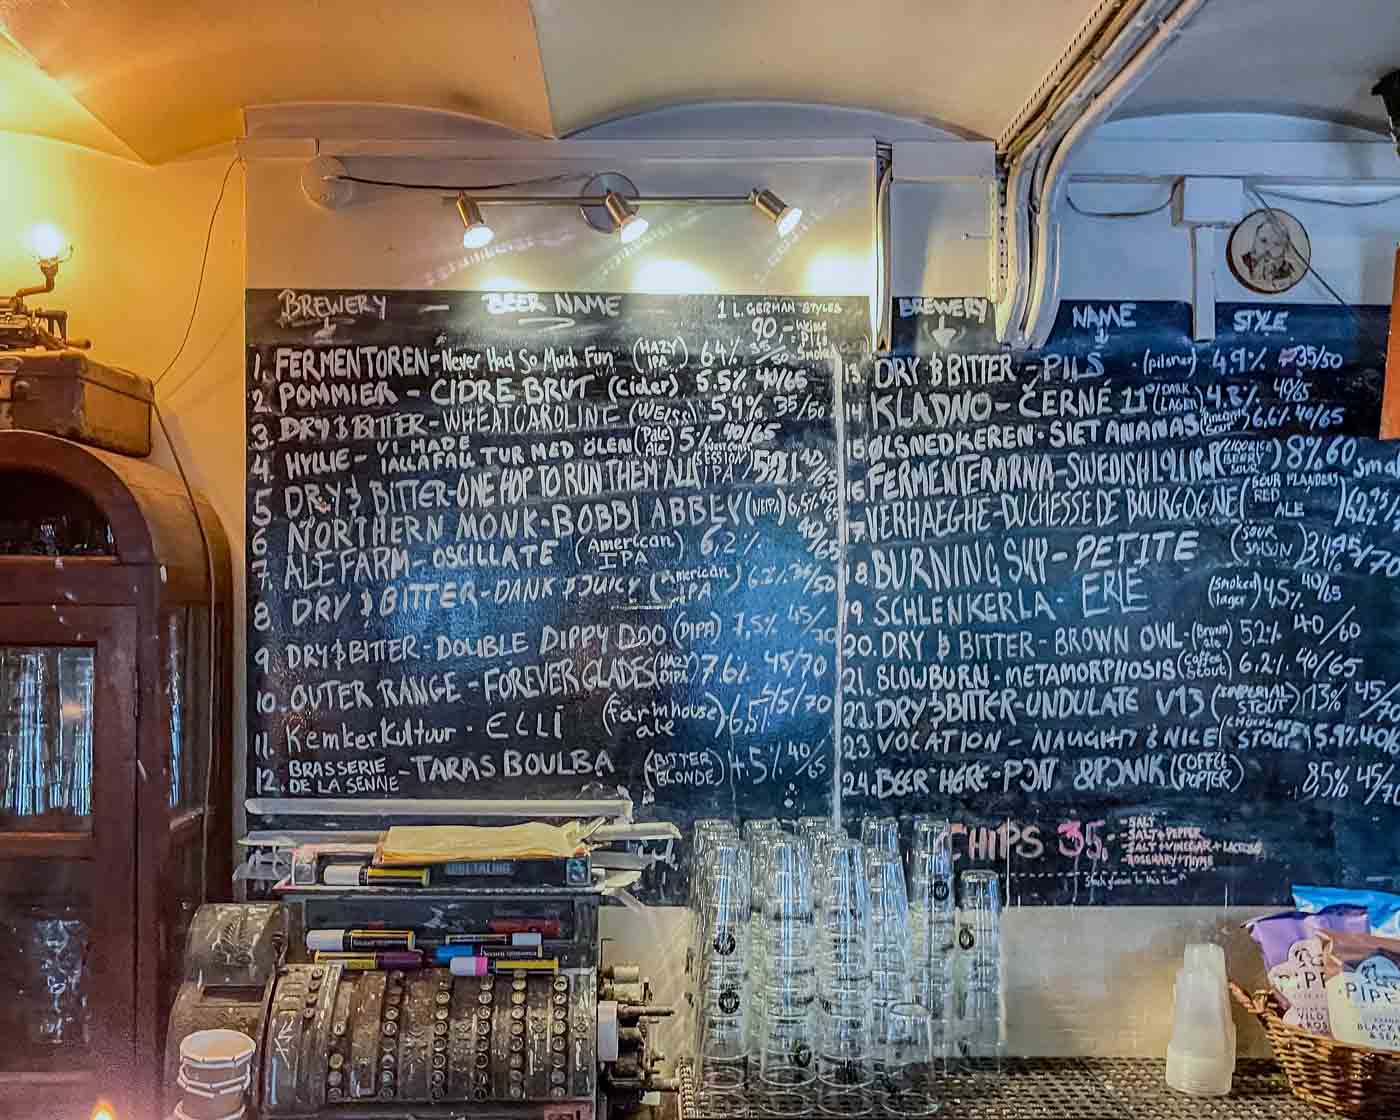 BREWERY — BEER NAME
1 L. GERMAN STYLES
90
1. FERMENTOREN - Never Had So Much Fun (HAZY IPA) 6.4%
2. POMMIER - CIDRE BRUT (cider) 5.5% 40/65
3. DRY & BITTER - WHEAT CAROLINE (WEISS) 5,4% 35/60
4. HYLLIE - VI HADE IALLAFALL TUR MED ÖLEN (Pale Ale) 5% 40/65
5. DRY & BITTER - ONE HOP TO RUN THEM ALL (SESSION IPA)
6. NORTHERN MONK - BOBBI ABBEY (NEIPA) 6,5%
7. ALEFARM - OSCILLATE (American IPA) 6,2% 40/65
8. DRY & BITTER - DANK & JUICY (American IPA) /50
9. DRY & BITTER - DOUBLE DIPPY DOO (DIPA) 7,5% 45/70
10. OUTER RANGE - FOREVER GLADES (HAZY DIPA) 7.6% 45/70
11. Kemker Kultuur - ELLI (farmhouse ale) 6,5% /70
12. BRASSERIE DE LA SENNE - TARAS BOULBA (BITTER BLONDE) 4.5% 40/65
BREWERY NAME STYLE
13. DRY & BITTER - PILS (pilsner) 4.9% 35/50
14. KLADNO - ČERNÉ 11° (DARK LAGER) 4,8% 40/65
15. ØLSNEDKEREN - SIET ANANAS 6,6% 40/65
16. FERMENTERARNA - SWEDISH 8% 60
17. VERHAEGHE - DUCHESSE DE BOURGOGNE (SOUR FLANDERS RED ALE)
18. BURNING SKY - PETITE (SOUR SAISON) /70
19. SCHLENKERLA - ERLE (smoked lager) 4,5% 40/65
20. DRY & BITTER - BROWN OWL - (Brown ale) 5,2% 40/60
21. BLOWBURN - METAMORPHOSIS (Coffee Stout) 6.2% 40/65
22. DRY & BITTER - UNDULATE V13 (IMPERIAL STOUT) 13% 45/
23. VOCATION - NAUGHTY & NICE (CHOCOLATE STOUT) 5.9%
24. BEER HERE - PØNT & PØNK (COFFEE PORTER) 8,5% 45/
CHIPS 35.
- SALT
- SALT + PEPPER
- SALT + VINEGAR +
- ROSEMARY + THYME
PIPE
PIPE